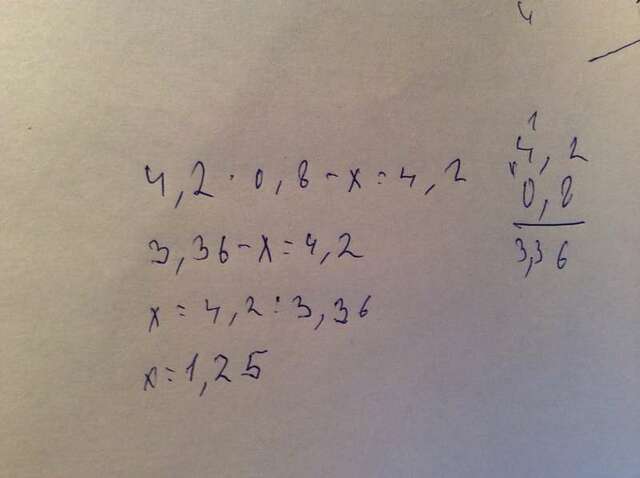 4,2 · 0,8 - x = 4,2
3,36 - x = 4,2
x = 4,2 : 3,36
x = 1,25
1
4,2
x
0,8
3,36